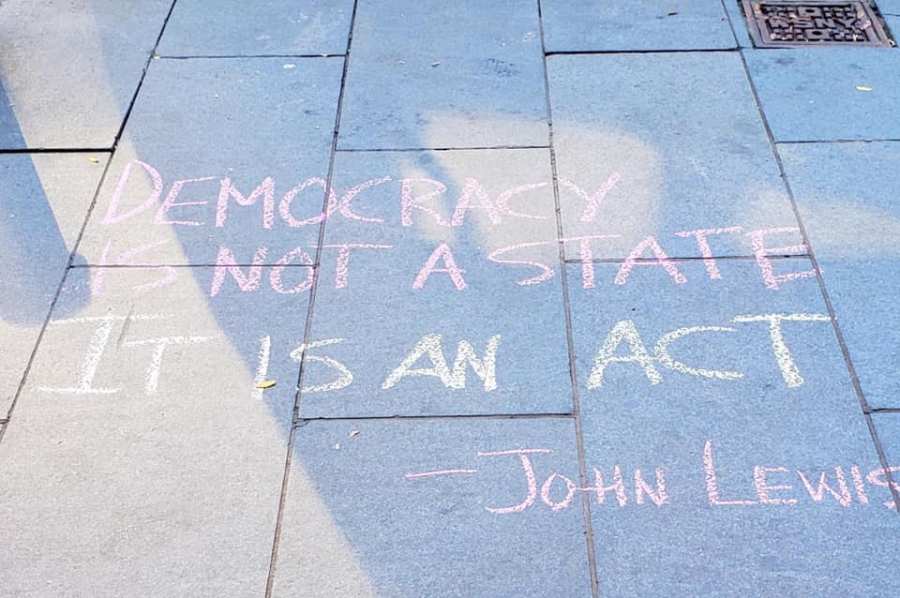 DEMOCRACY
IS NOT A STATE
IT IS AN ACT
- JOHN LEWIS